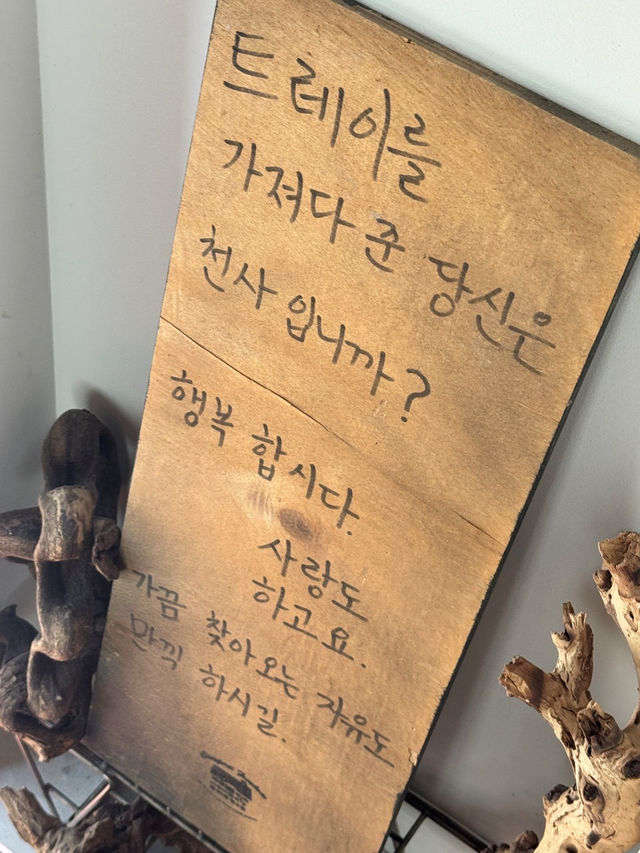 트레이를
가져다 준 당신은
천사 입니까?
행복 합시다.
사랑도
하고요.
가끔 찾아오는 자유도
만끽 하시길.